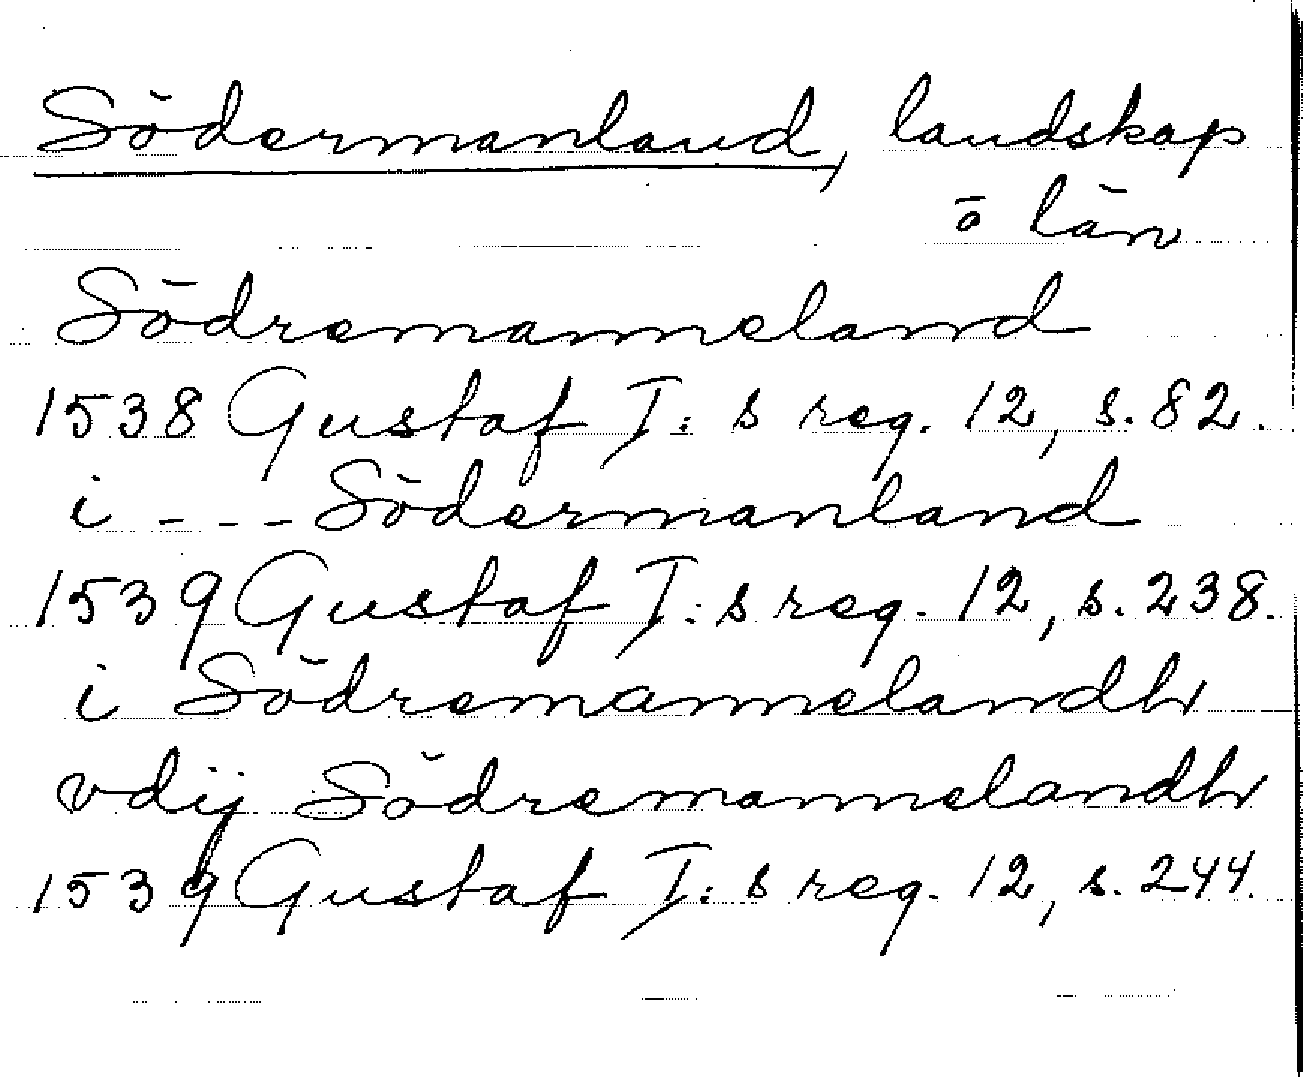 Södermanland, landskap
o län
Södremanneland
1538 Gustaf I: s reg. 12, s. 82.
i - - - Södermanland
1539 Gustaf I: s reg. 12, s. 238.
i Södremannelandh
vdij Södremannelandh
1539 Gustaf I: s reg. 12, s. 244.